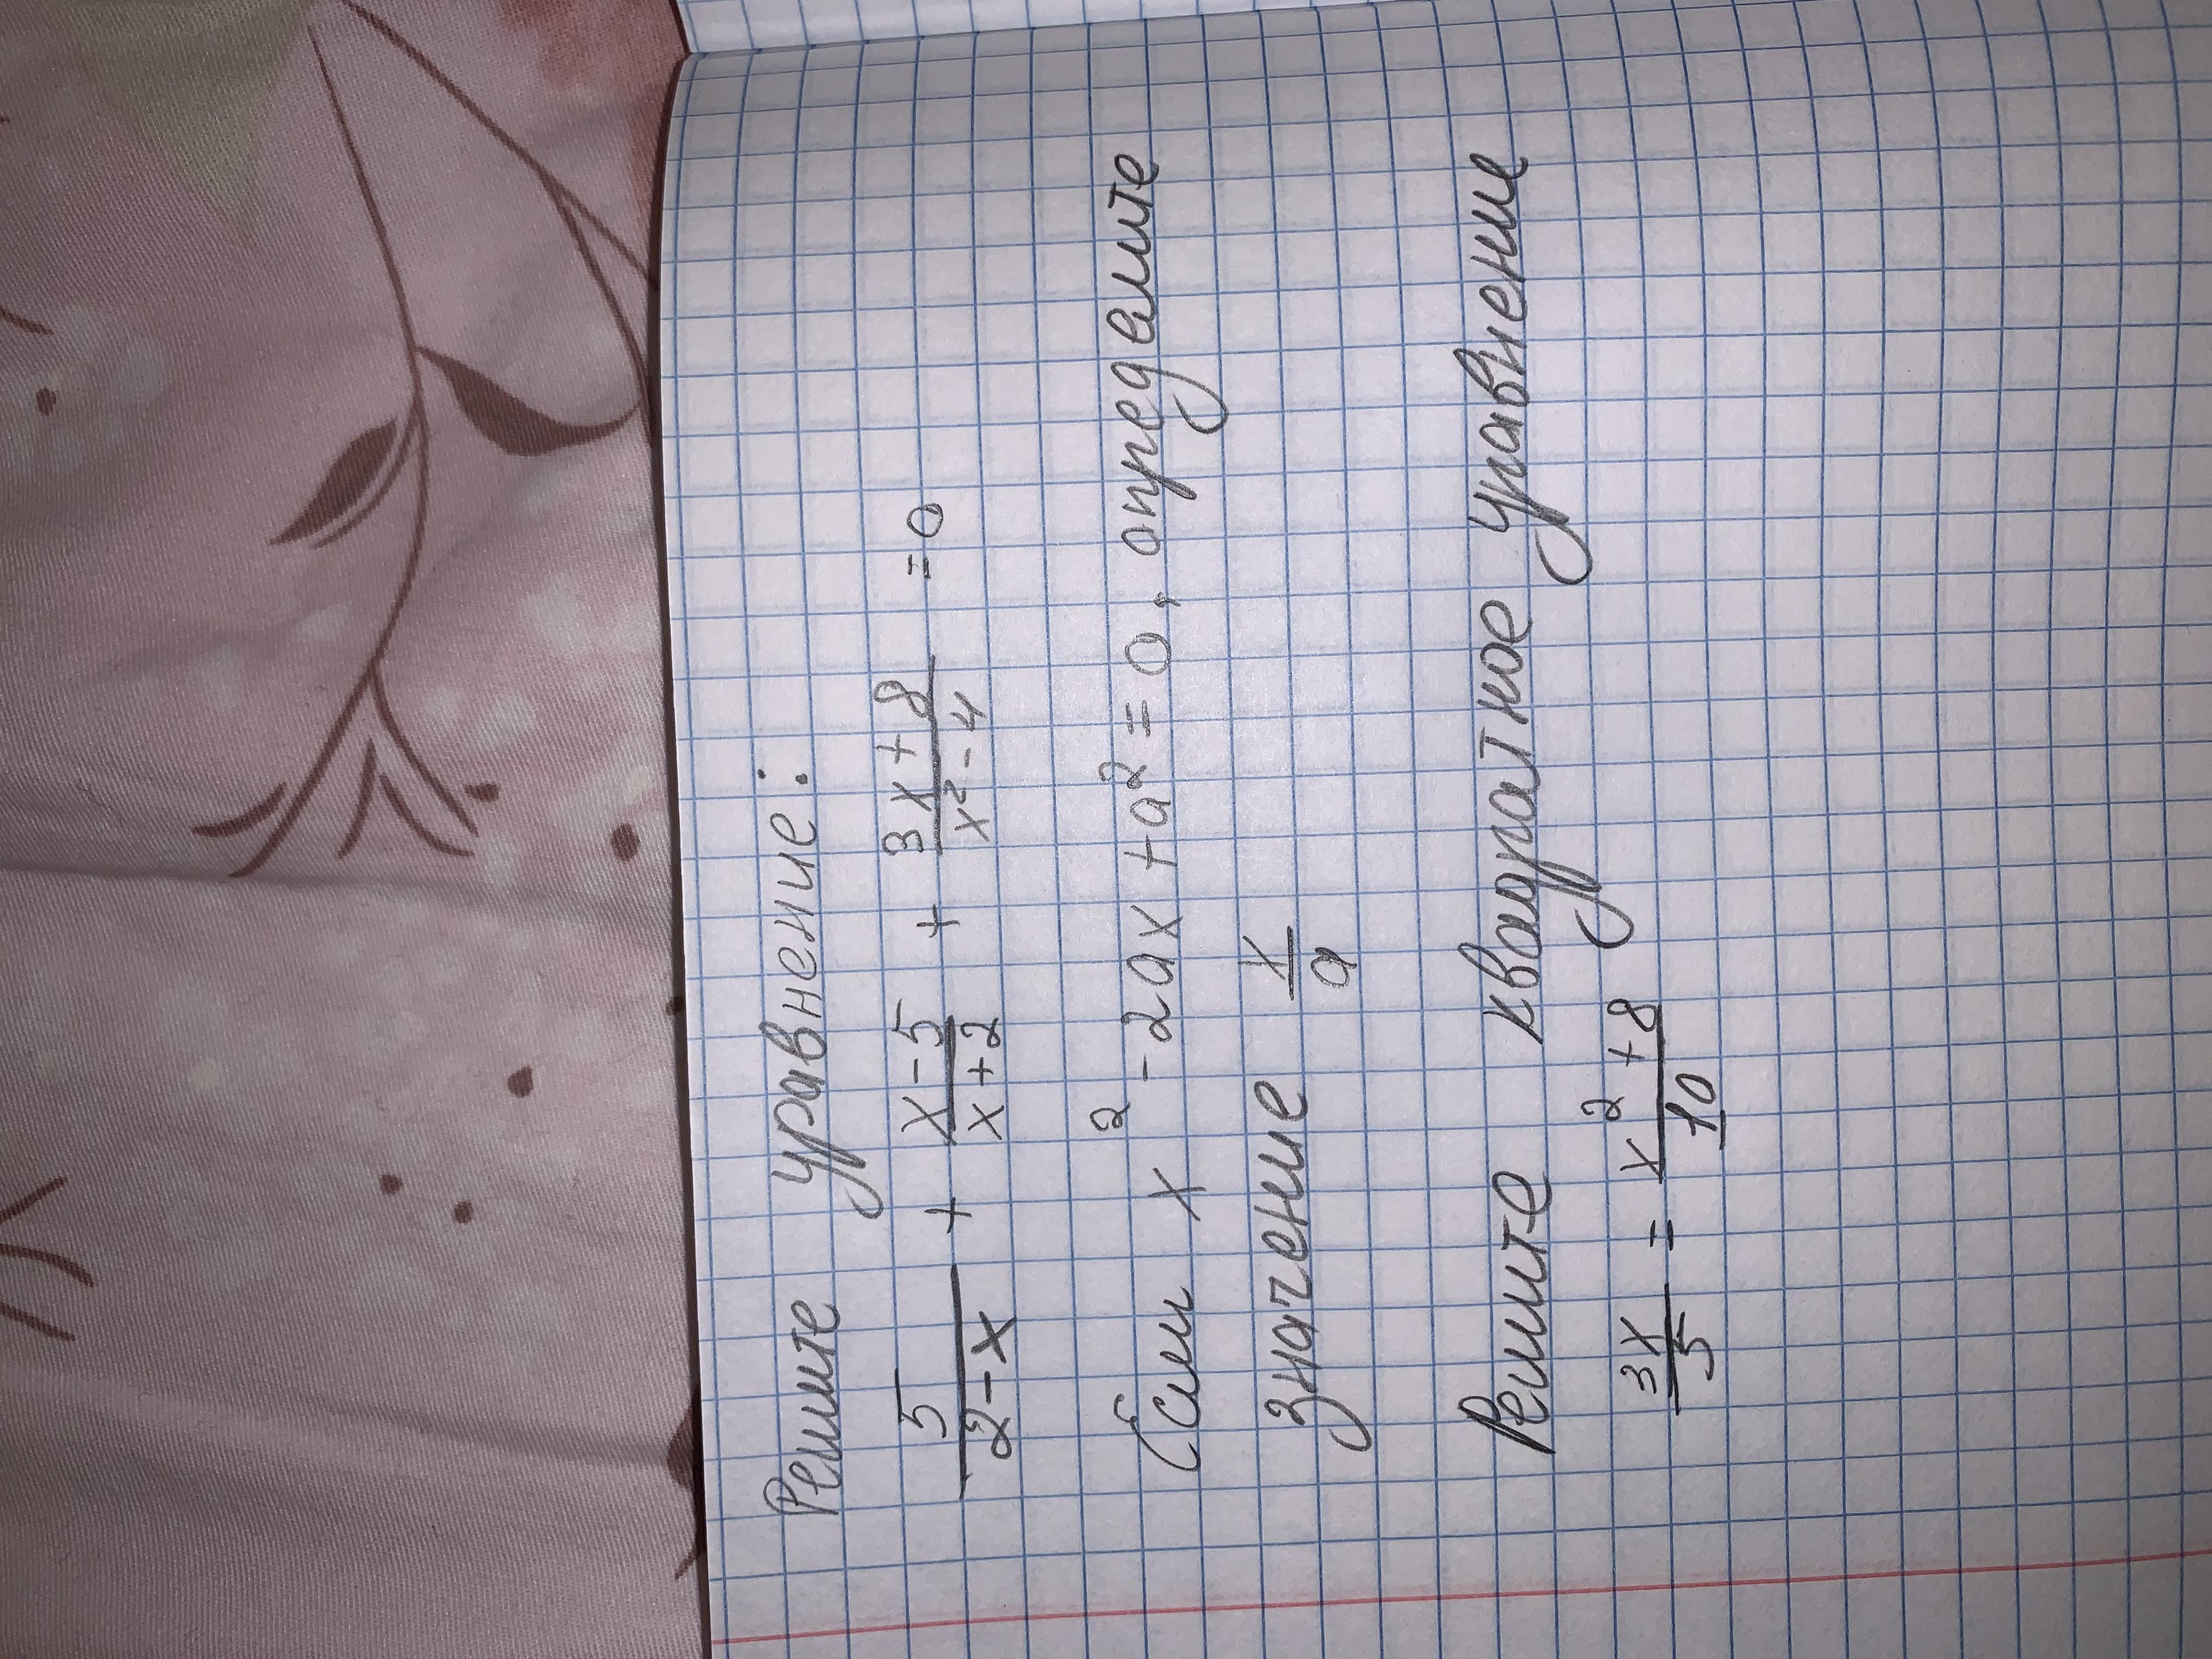 Решите уравнение:
5/(2-x) + (x-5)/(x+2) + (3x+8)/(x²-4) = 0
Если x² - 2ax + a² = 0, определите
значение x/a
Решите квадратное уравнение
3x/5 = (x²+8)/10